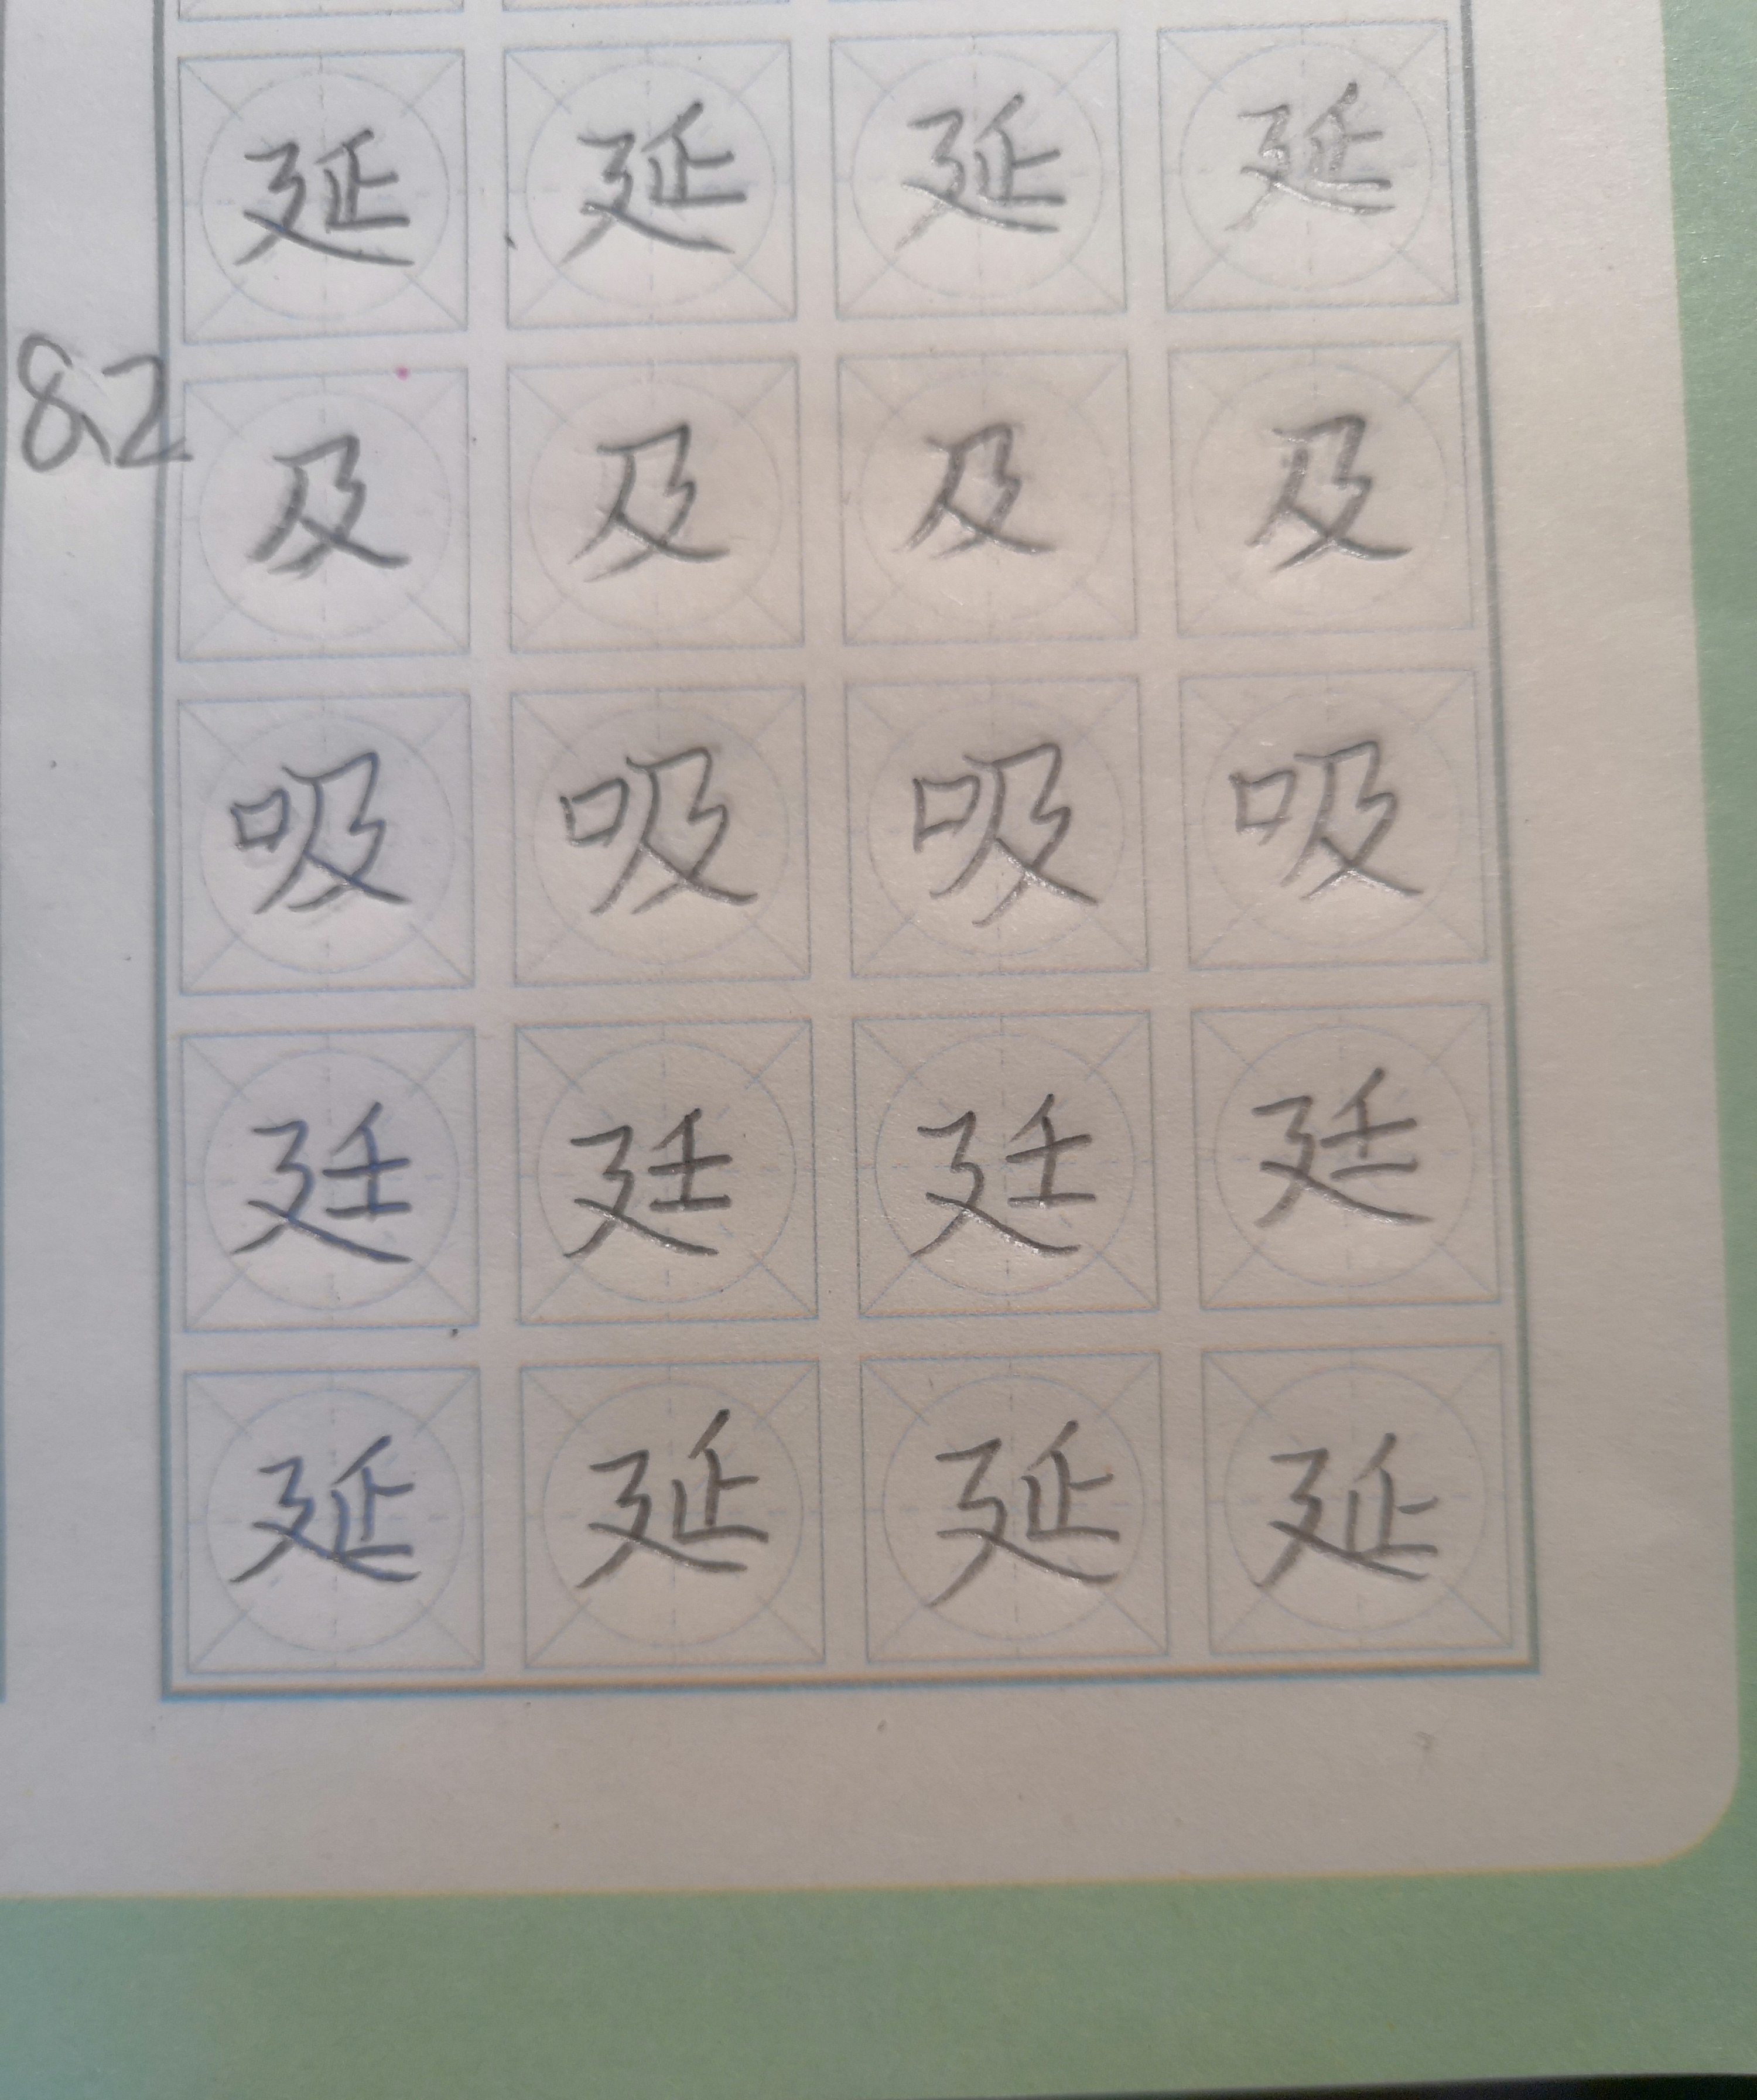 延延延延
8.2
及及及及
吸吸吸吸
廷廷廷廷
延延延延